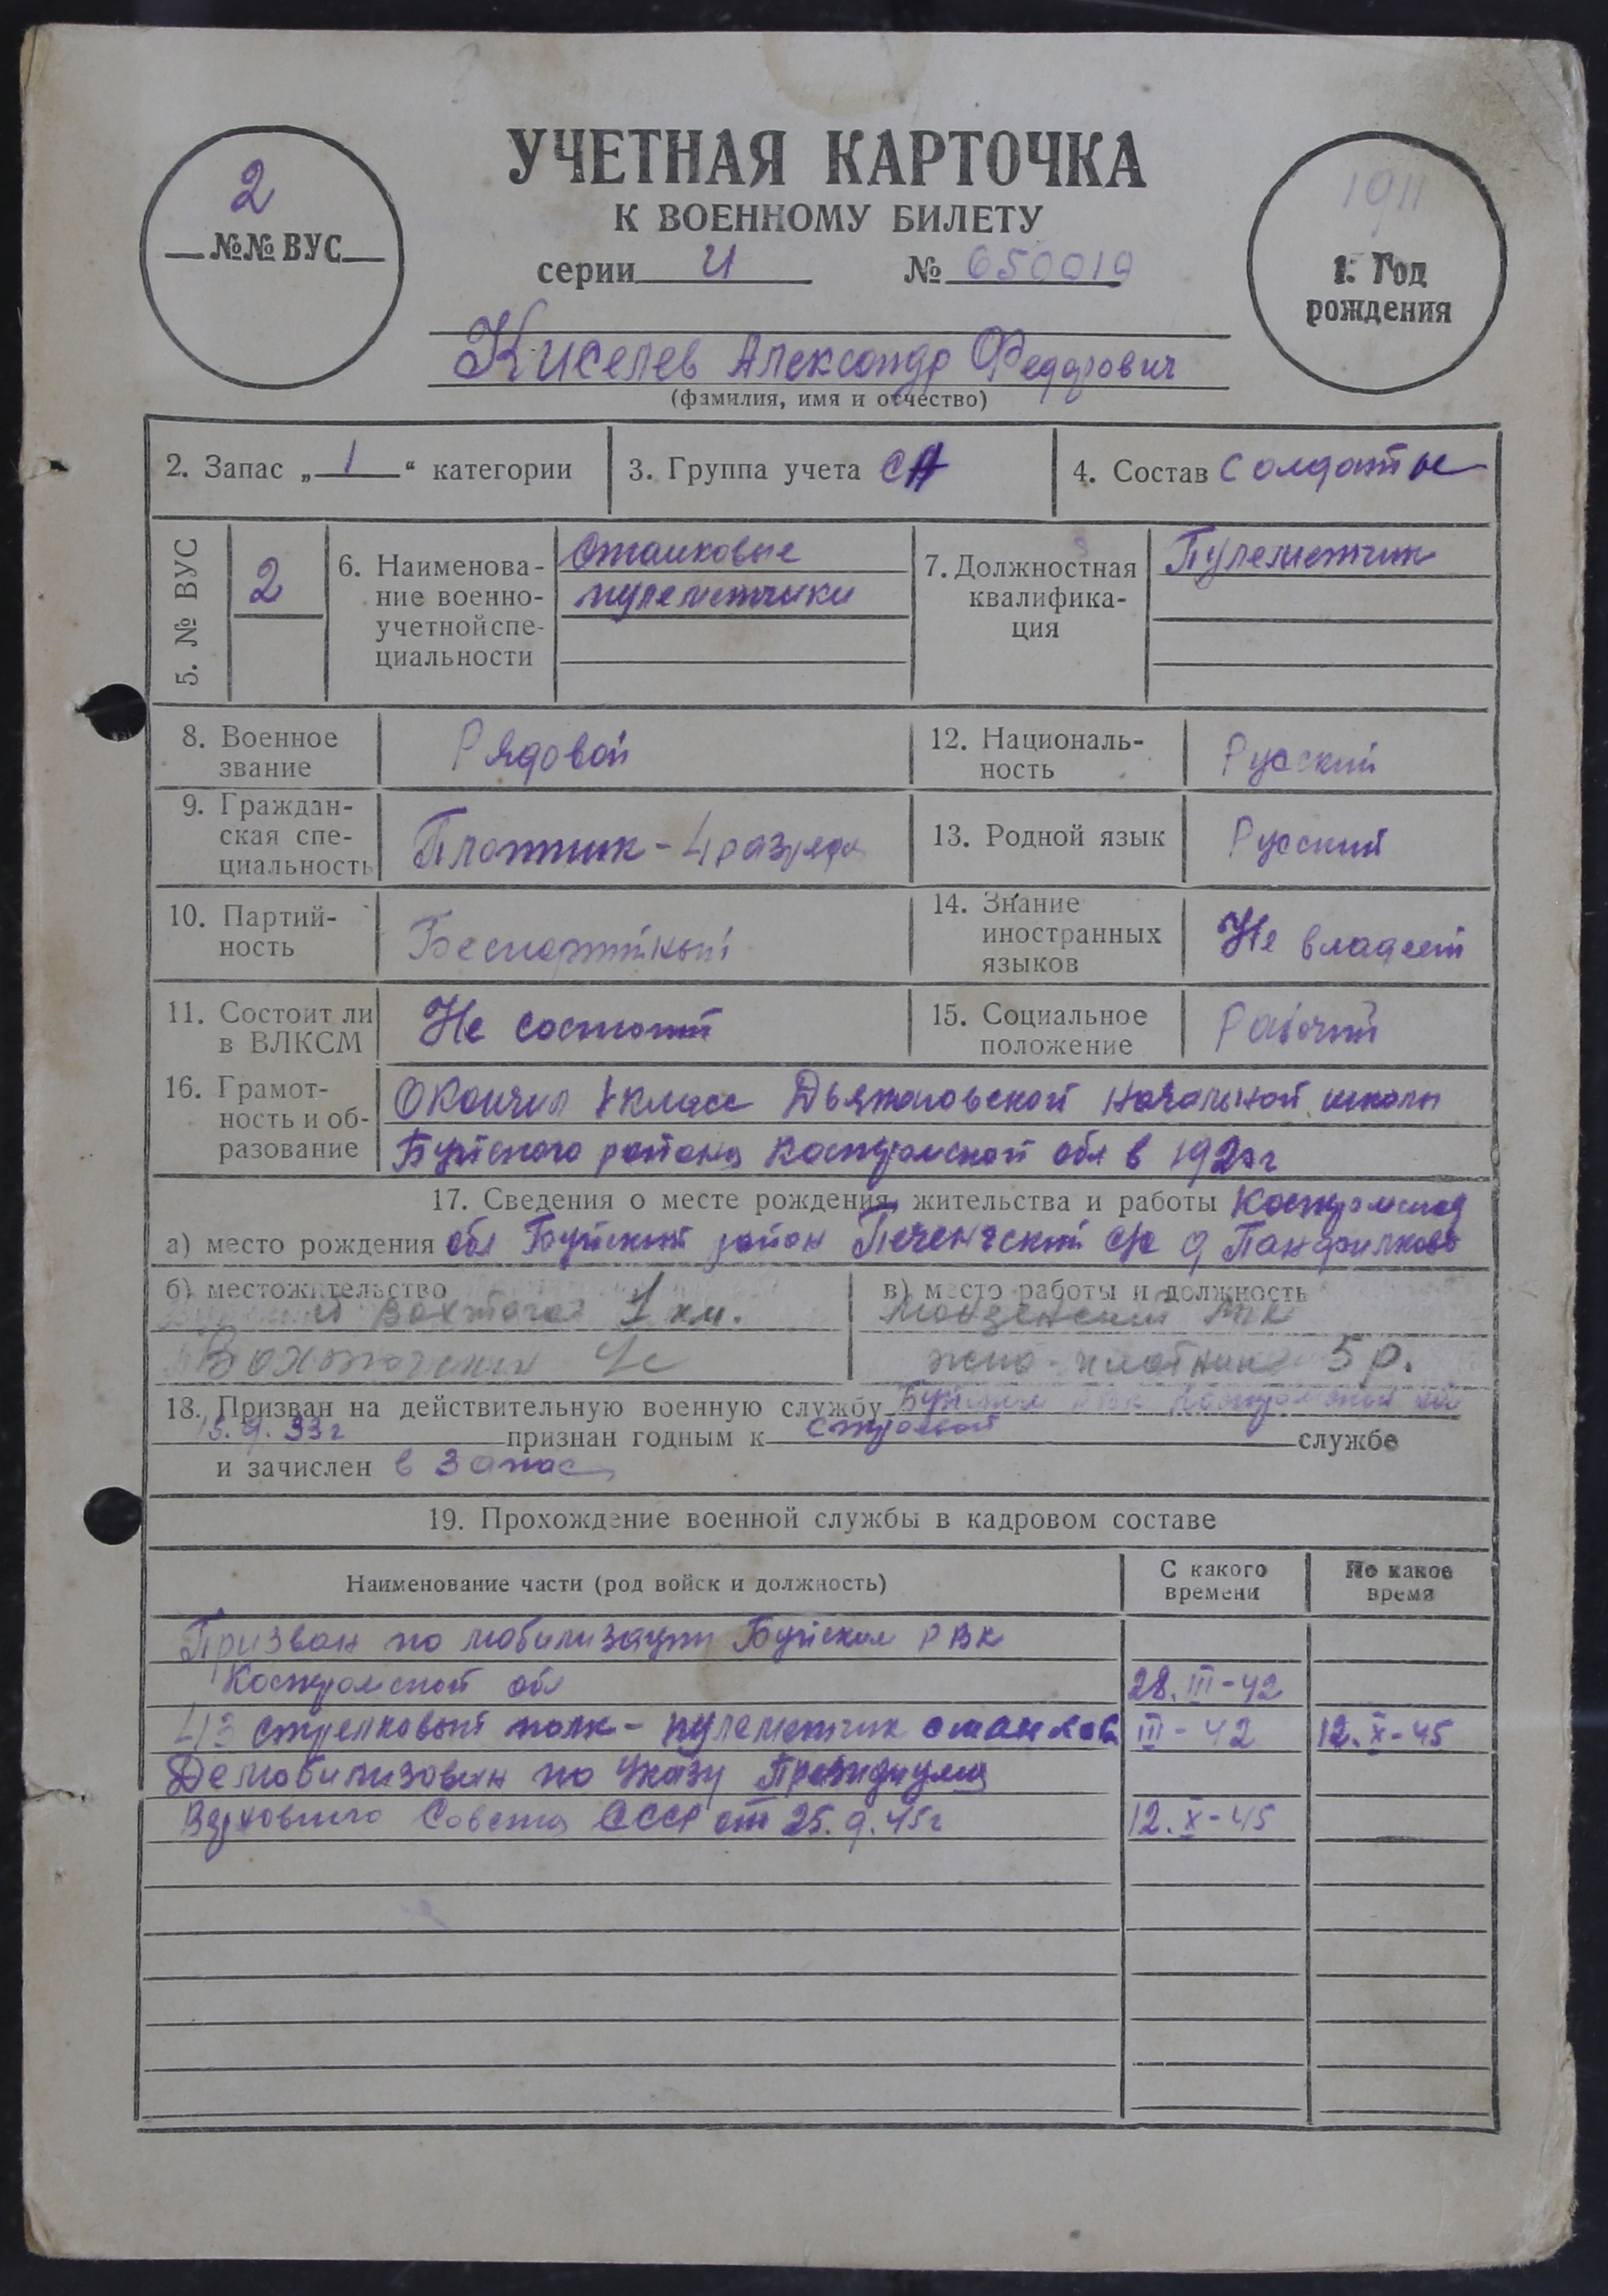 УЧЕТНАЯ КАРТОЧКА
К ВОЕННОМУ БИЛЕТУ
серии И № 050019
2
№№ ВУС
1911
1. Год
рождения
Киселев Александр Федорович
(фамилия, имя и отчество)
2. Запас „ 1 “ категории
3. Группа учета СА
4. Состав Солдаты
5. № ВУС
2
6. Наименова-
ние военно-
учетной спе-
циальности
Станковые
пулеметчики
7. Должностная
квалифика-
ция
Пулеметчик
8. Военное
звание
Рядовой
12. Националь-
ность
Русский
9. Граждан-
ская спе-
циальность
Плотник - 4 разряда
13. Родной язык
Русский
10. Партий-
ность
Беспартийный
14. Знание
иностранных
языков
Не владеет
11. Состоит ли
в ВЛКСМ
Не состоит
15. Социальное
положение
Рабочий
16. Грамот-
ность и об-
разование
Окончил класс начальной школы
Буйского района Костромской обл в
17. Сведения о месте рождения, жительства и работы Костромская
а) место рождения обл Буйский район с/с д Панфилково
б) местожительство
Вохтога 1 км.
Вохтожский
в) место работы и должность
Монзенский
плотник 5 р.
18. Призван на действительную военную службу Буйским РВК Костромской обл
15.9.33г признан годным к строевой службе
и зачислен в запас
19. Прохождение военной службы в кадровом составе
Наименование части (род войск и должность)
С какого
времени
По какое
время
Призван по мобилизации Буйским РВК
Костромской обл 28.III-42
413 стрелковый полк - пулеметчик станков III-42 12.X-45
Демобилизован по Указу Президиума
Верховного Совета СССР от 25.9.45г 12.X-45